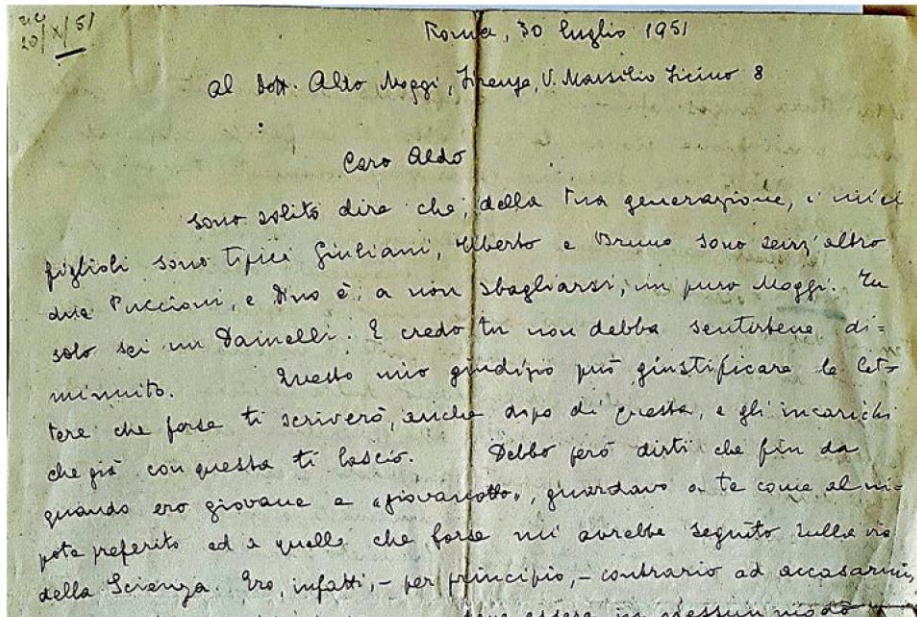 20/X/51
Roma, 30 luglio 1951
Al Dott. Aldo Moggi, Firenze, V. Marsilio Ficino 8
Caro Aldo
sono solito dire che, della tua generazione, i miei
figlioli sono tipici Giuliani, Uberto e Bruno sono senz'altro
due Puccioni, e Dino è, a non sbagliarsi, un puro Moggi. Tu
solo sei un Dainelli. E credo tu non debba sentirtene di=
minuito. Questo mio giudizio può giustificare le let=
tere che forse ti scriverò, anche dopo di questa, e gli incarichi
che già con questa ti lascio. Debbo però dirti che fin da
quando ero giovane e "giovanotto", guardavo a te come al ni=
pote preferito ed a quello che forse mi avrebbe seguito sulla via
della Scienza. Ero, infatti, - per principio, - contrario ad accasarmi,
essere in nessun modo